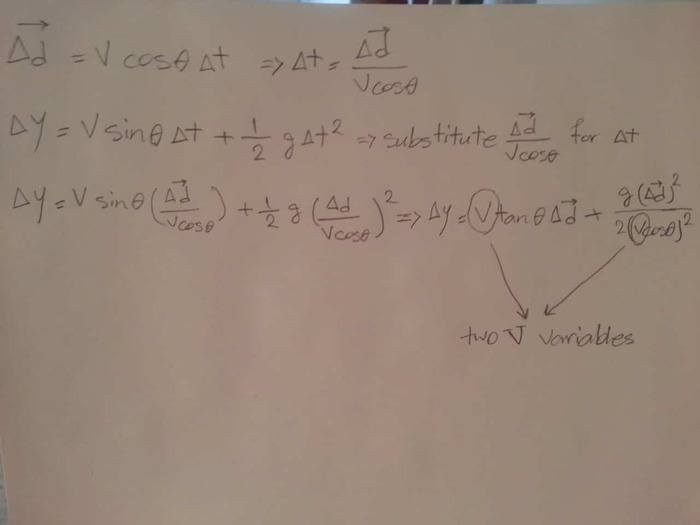 Δd⃗ = V cosθ Δt ⇒ Δt = Δd⃗ / Vcosθ
Δy = V sinθ Δt + 1/2 g Δt² ⇒ substitute Δd⃗ / Vcosθ for Δt
Δy = V sinθ (Δd⃗ / Vcosθ) + 1/2 g (Δd / Vcosθ)² ⇒ Δy = V tanθ Δd⃗ + g(Δd⃗)² / 2(Vcosθ)²
two V variables